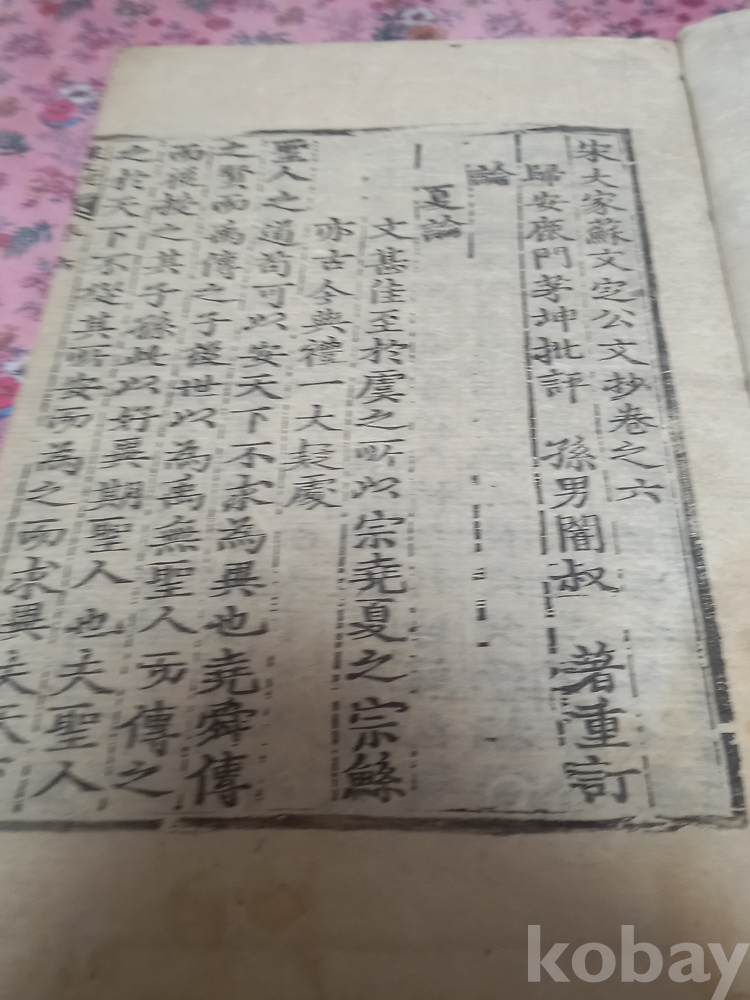 宋大家蘇文定公文抄卷之六
歸安鹿門茅坤批評 孫男闇叔 著重訂
論
夏論
文甚佳至於虞之所以宗堯夏之宗鯀
亦古今典禮一大疑處
聖人之道苟可以安天下不求為異也堯舜傳
之賢而禹傳之子後世以為禹無聖人而傳之
而後授之其子孫此以好異期聖人也夫聖人
之於天下不從其所安而為之而求異夫天
kobay